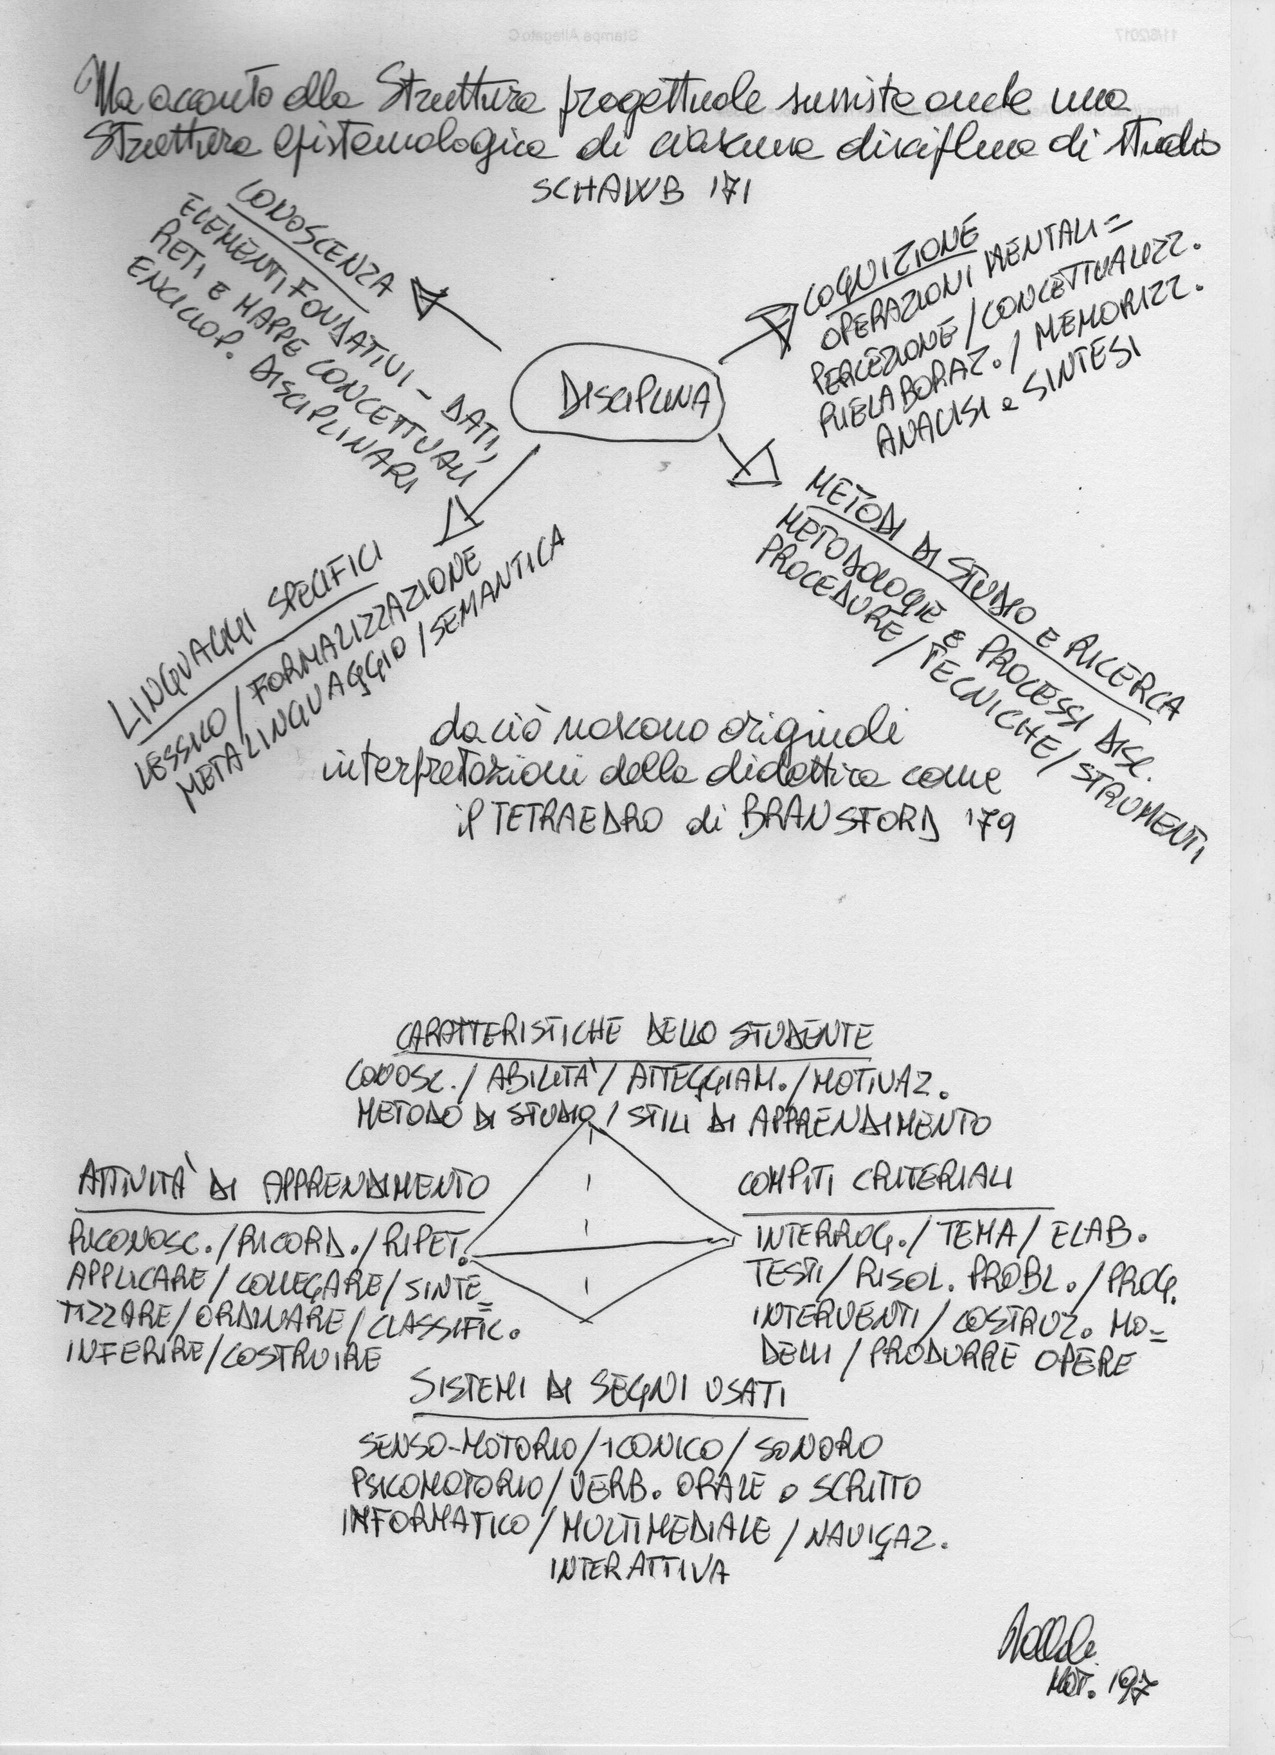 Ma accanto alla Struttura progettuale sussiste anche una
Struttura epistemologica di ciascuna disciplina di studio
SCHAWB '71
CONOSCENZA
ELEMENTI FONDATIVI - DATI,
RETI E MAPPE CONCETTUALI
ENCICLOP. DISCIPLINARI
COGNIZIONE
OPERAZIONI MENTALI=
PERCEZIONE/CONCETTUALIZZ.
RIELABORAZ./MEMORIZZ.
ANALISI e SINTESI
DISCIPLINA
LINGUAGGI SPECIFICI
LESSICO/FORMALIZZAZIONE
METALINGUAGGIO/SEMANTICA
METODI DI STUDIO E RICERCA
METODOLOGIE E PROCESSI DISC.
PROCEDURE/TECNICHE/STRUMENTI
da ciò nascono originali
interpretazioni della didattica come
il TETRAEDRO di BRANSFORD '79
CARATTERISTICHE DELLO STUDENTE
CONOSC./ABILITÀ/ATTEGGIAM./MOTIVAZ.
METODO DI STUDIO/STILI DI APPRENDIMENTO
ATTIVITÀ DI APPRENDIMENTO
RICONOSC./RICORD./RIPET.
APPLICARE/COLLEGARE/SINTE=
TIZZARE/ORDINARE/CLASSIFIC.
INFERIRE/COSTRUIRE
COMPITI CRITERIALI
INTERROG./TEMA/ELAB.
TESTI/RISOL. PROBL./PROG.
INTERVENTI/COSTRUZ. MO=
DELLI/PRODURRE OPERE
SISTEMI DI SEGNI USATI
SENSO-MOTORIO/ICONICO/SONORO
PSICOMOTORIO/VERB. ORALE o SCRITTO
INFORMATICO/MULTIMEDIALE/NAVIGAZ.
INTERATTIVA
'97